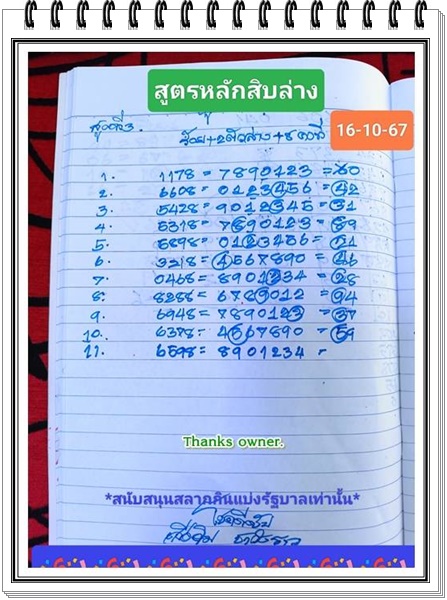 สูตรหลักสิบล่าง
สูตรที่3.
ร้อย+2ตัวล่าง+8คงที่
16-10-67
1. 1178 = 7890123 = 60
2. 6608 = 0123456 = 42
3. 5428 = 9012345 = 31
4. 5318 = 7890123 = 89
5. 5898 = 0123456 = 21
6. 3218 = 4567890 = 46
7. 0468 = 8901234 = 28
8. 8286 = 6789012 = 94
9. 6948 = 7890123 = 37
10. 6378 = 4567890 = 59
11. 6598 = 8901234 =
Thanks owner.
*สนับสนุนสลากกินแบ่งรัฐบาลเท่านั้น*